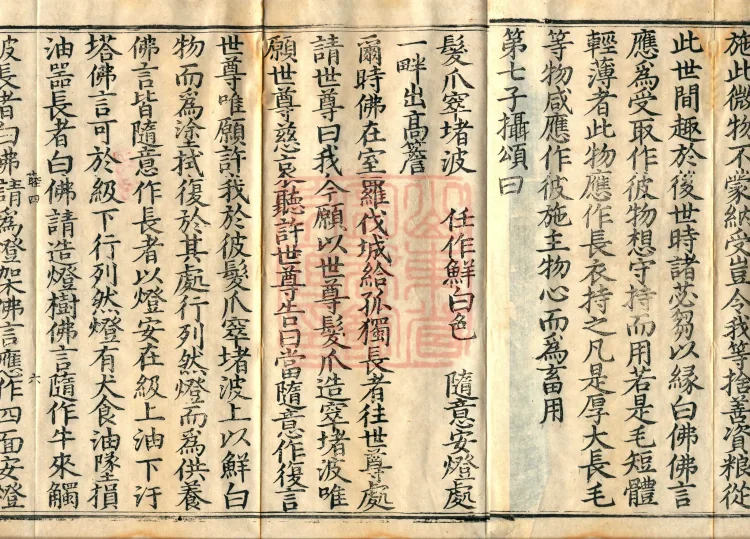 施此微物不蒙納受豈令我等捨善資粮從
此世間趣於後世時諸苾芻以緣白佛佛言
應爲受取作彼物想守持而用若是毛短體
輕薄者此物應作長衣持之凡是厚大長毛
等物咸應作彼施主物心而為畜用
第七子攝頌曰
髮爪窣堵波 任作鮮白色 隨意安燈處
一畔出高簷
爾時佛在室羅伐城給孤獨長者往世尊處
請世尊曰我今願以世尊髮爪造窣堵波唯
願世尊慈哀聽許世尊告曰當隨意作復言
世尊唯願許我於彼髮爪窣堵波上以鮮白
物而爲塗拭復於其處行列然燈而爲供養
佛言皆隨意作長者以燈安在級上油下汙
塔佛言可於級下行列然燈有犬食油墜損
油器長者白佛請造燈樹佛言隨作牛來觸
破長者白佛請爲燈架佛言應作四面安燈